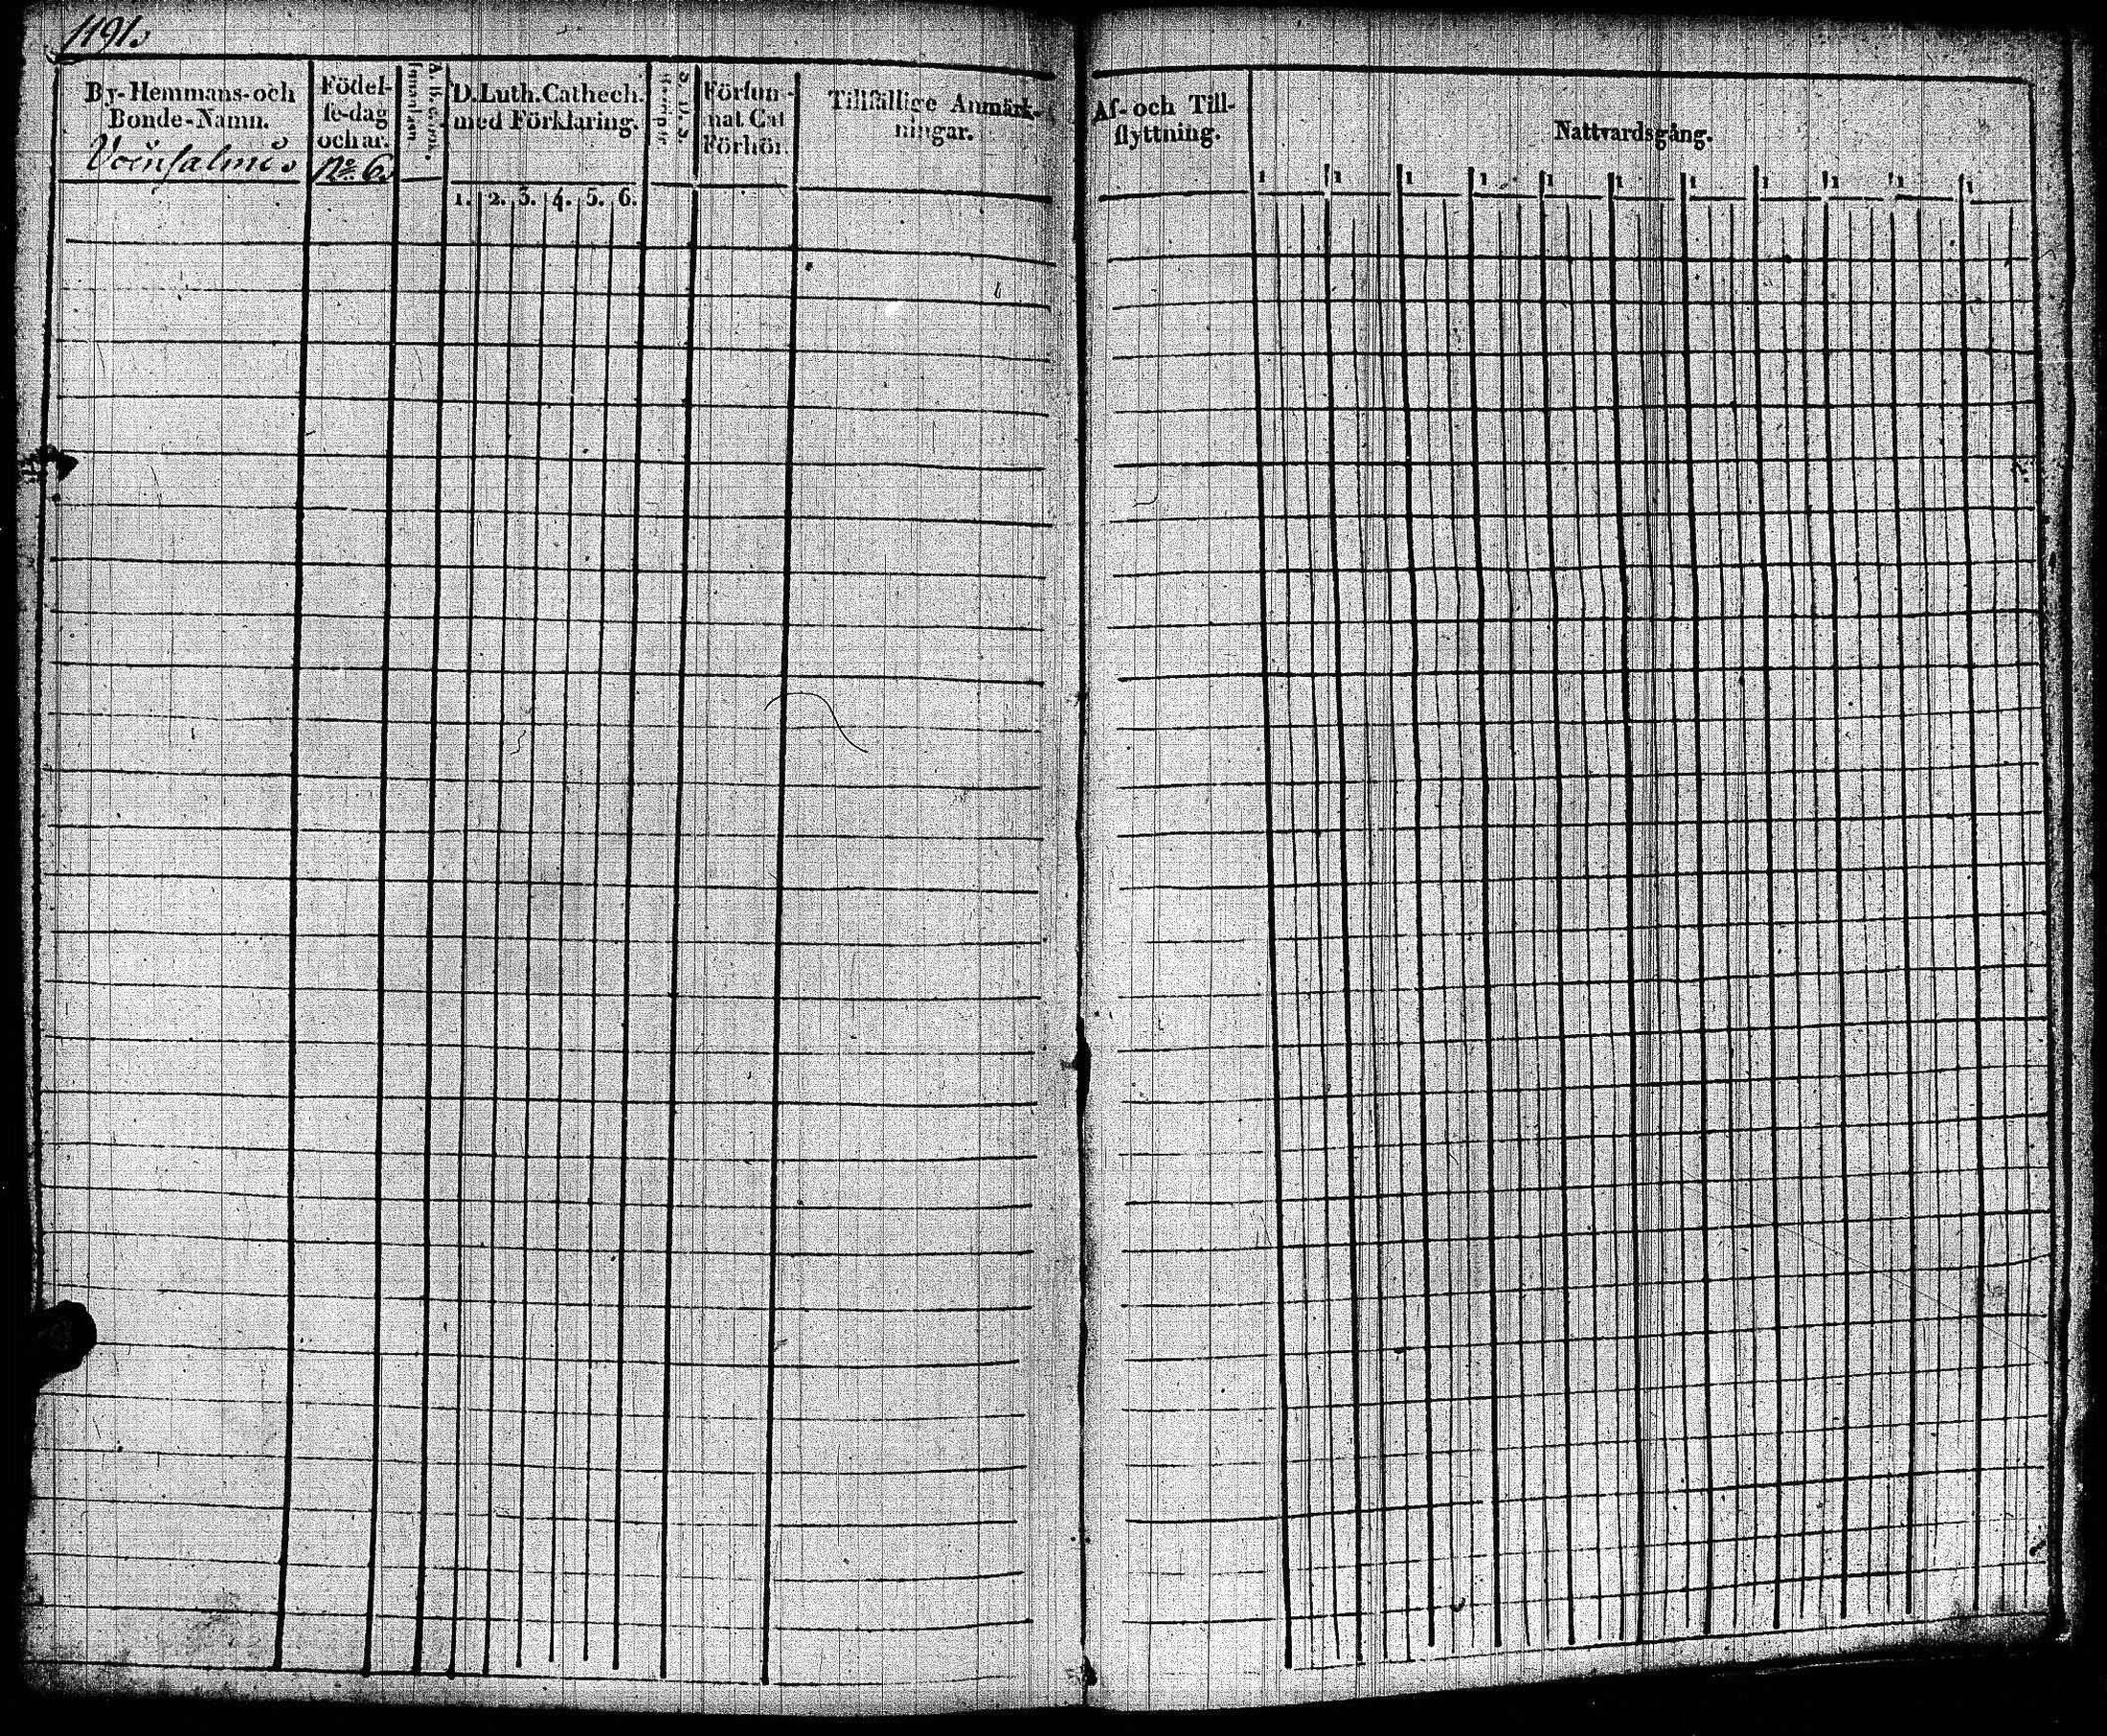 1191.
By-Hemmans-och
Bonde-Namn.
Födel-
se-dag
och ar.
No 6.
D. Luth. Cathech.
med Förklaring.
1. 2. 3. 4. 5. 6.
Försum-
nat Cat
Förhör.
Tillfällige Anmärk-
ningar.
Af- och Till-
flyttning.
Nattvardsgång.
1 1 1 1 1 1 1 1 1 1 1